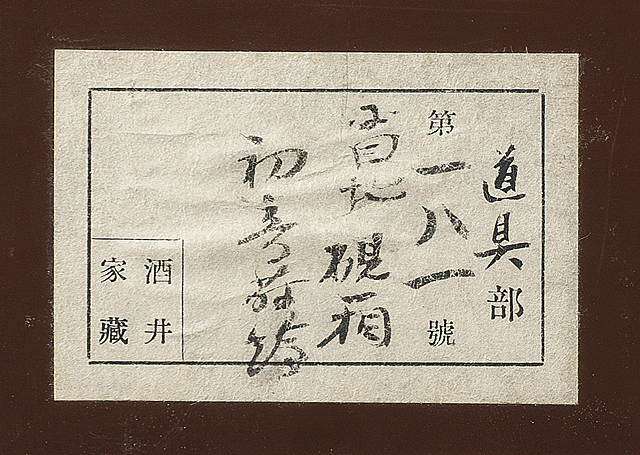 道具部
第一八一號
硯箱
初音蒔繪
酒井
家藏